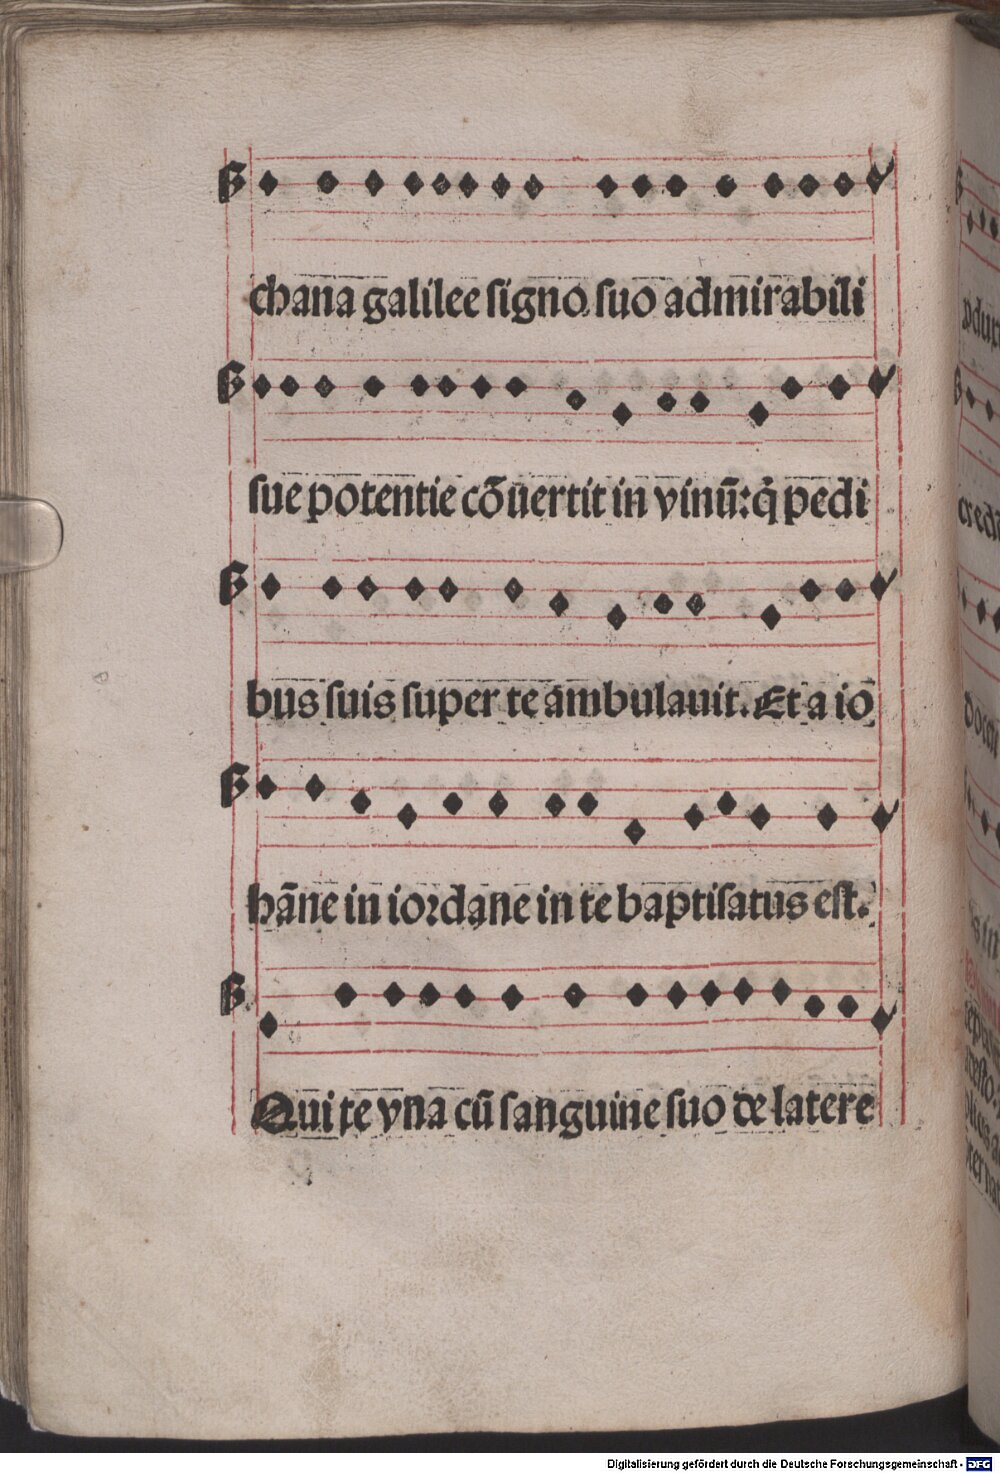 chana galilee signo suo admirabili
sue potentie cõuertit in vinũ: q̇ pedi
bus suis super te ambulauit. Et a io
hãne in iordane in te baptisatus est.
Qui te vna cũ sanguine suo de latere
Digitalisierung gefördert durch die Deutsche Forschungsgemeinschaft - DFG